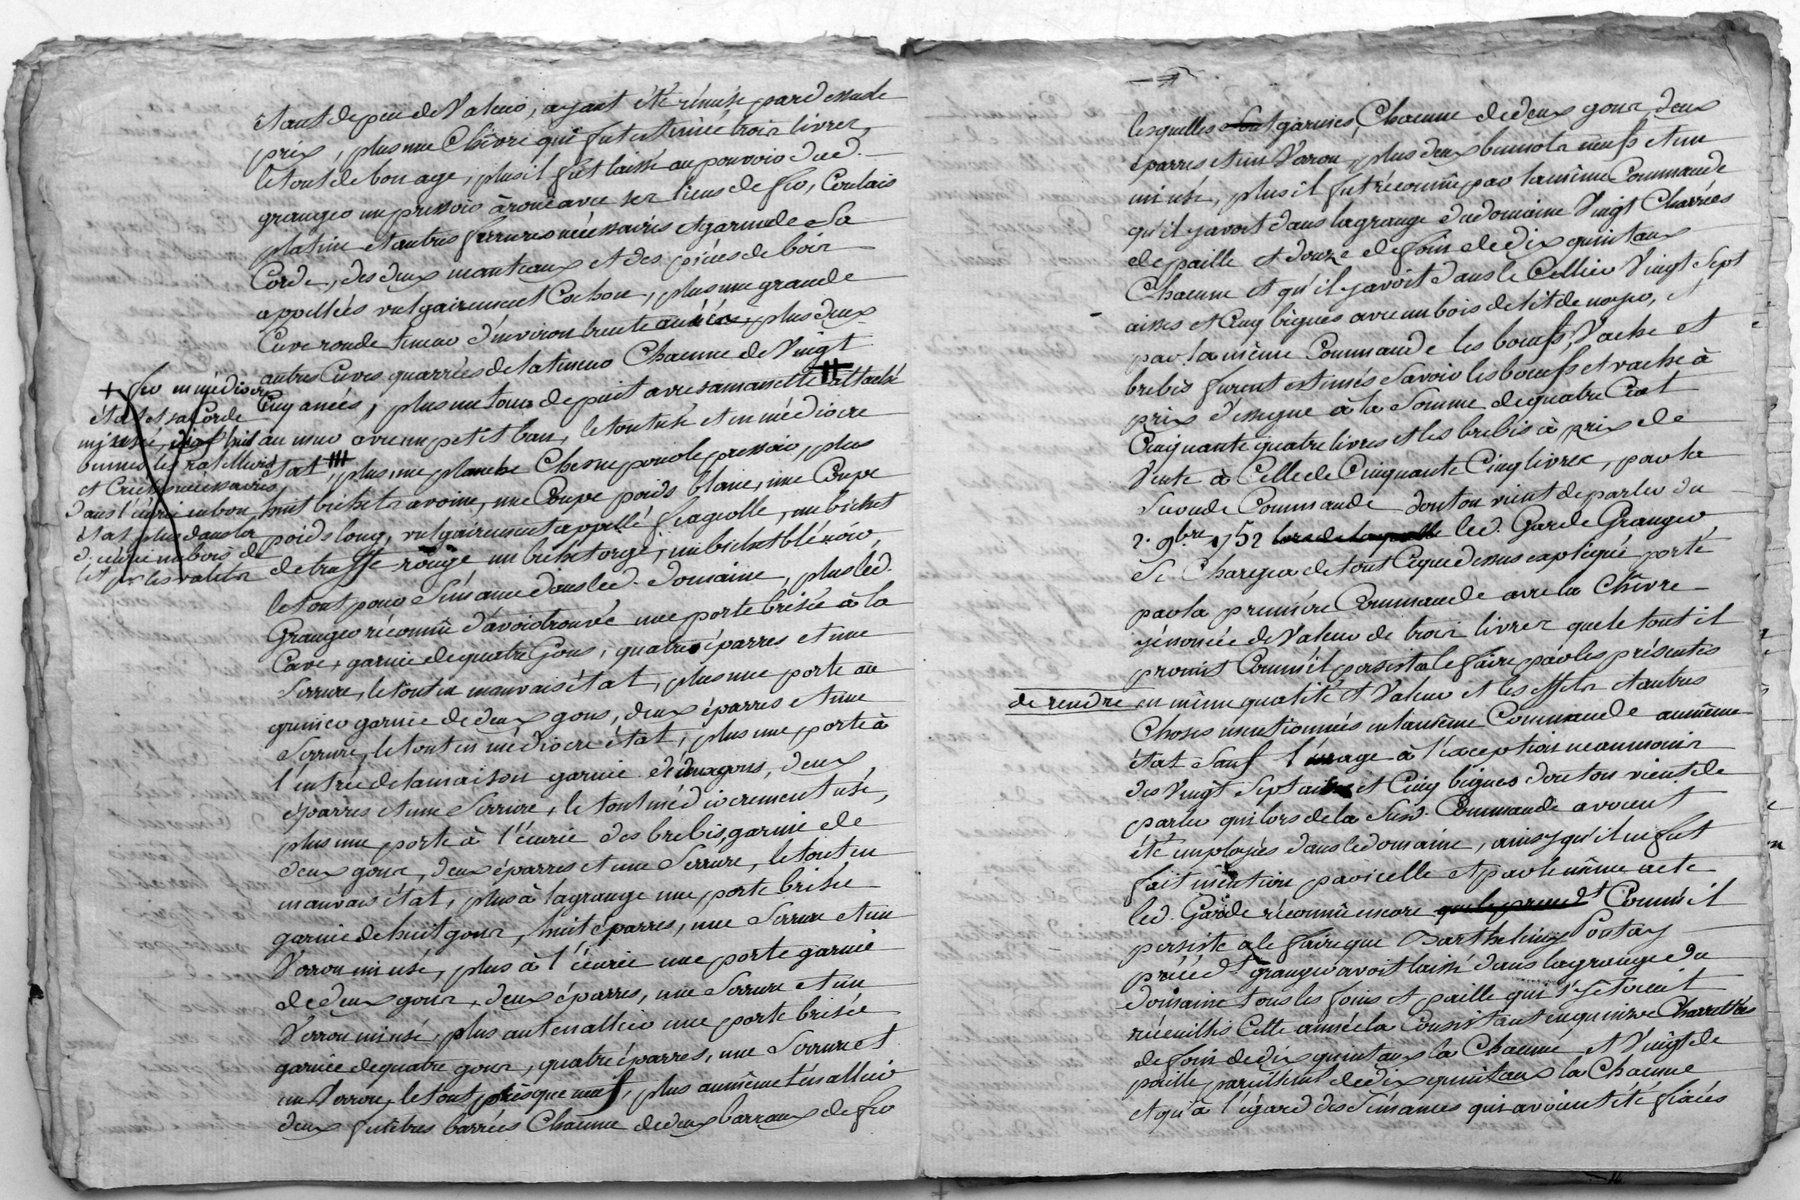 étant de peu de Valeur, ayant été rémise par dessus le
prix, plus une Chèvre qui fut estimée trois livres,
le tout de bon age, plus il fut laissé au pouvoir dud.
granger un pressoir à roue avec ses liens de fer, Coulais
platine et autres ferrures nécessaires et garni de Sa
Corde, des deux manteaux et des pièces de bois
appellées vulgairement Cochon, plus une grande
Cuve ronde teneur d'environ trente anées, plus deux
autres Cuves quarrées de la teneur Chacune de Vingt
Cinq anées, plus une tour de puit avec sa manette attaché
au mur avec un petit ban, le tout usé et en médiocre
état, plus, une planche Chesne pour le pressoir, plus
huit bichets avoine, une Coupe poids blanc, une Coupe
poids long, vulgairement appellé fiageolle, un bichet
de truffe rouge un bichet orge, un bichet blé noir,
le tout pour Sémance dans led. domaine, plus led.
Granger réconnu d'avoir trouvé une porte brisée à la
Cave, garnie de quatre Gons, quatre éparres et une
Serrure, le tout en mauvais état, plus une porte au
grenier garnie de deux gons, deux éparres et une
Serrure, le tout en médiocre état, plus une porte à
l'entrée de la maison garnie de deux gons, deux
éparres et une Serrure, le tout médiocrement usé,
plus une porte à l'écurie des brebis, garnie de
deux gons, deux éparres et une Serrure, le tout en
mauvais état, plus à la grange une porte brisée
garnie de huit gons, huit éparres, une Serrure et un
Verrou mi usé, plus à l'écurie une porte garnie
de deux gons, deux éparres, une Serrure et un
Verrou mi usé, plus au tenallier une porte brisée
garnie de quatre gons, quatre éparres, une Serrure et
un Verrou, le tout présque neuf, plus au même ténallier
deux fenêtres barrées Chacune de deux barreaux de fer
+ fer en médiocre
état et sa Corde
mi usée,
bennes les ratelliers
et Crèches nécessaires
dans l'écurie en bon
état plus dans la
d. écurie un bois de
lit pr les valets
lesquelles sont garnies, Chacune de deux gons deux
éparres et un Verrou, plus deux bennots neufs et un
mi usé, plus il fut réconnu par la même Commande
qu'il y avoit dans la grange du domaine Vingt Charrées
de paille et douze de foin de dix quintaux
Chacune et qu'il y avoit dans le Cellier Vingt Sept
aisses et Cinq bigues avec un bois de lit de noyer, et
par la même Commande les boeufs, Vache et
brebis furent estimés Savoir les boeufs et vache à
prix d'essegne à la Somme de quatre Cent
Cinquante quatre livres et les brebis à prix de
Vente à Celle de Cinquante Cinq livres, par la
Seconde Commande dont on vient de parler du
2. 9bre 1752 lors de laquelle led. Garde Granger
Se Chargea de tout Ce que dessus expliqué porté
par la première Commande avec la Chèvre
y énoncée de Valeur de trois livres que le tout il
promit Comme il persista le faire par les présentes
de rendre en même qualité et Valeur et les effets et autres
Choses mentionnées en la même Commande au même
état Sauf l'usage à l'éxception néanmoins
des Vingt Sept aisses et Cinq bigues dont on vient de
parler qui lors de la Susd. Commande avoient
été employés dans le domaine, ainsy qu'il en fut
fait mention par icelle et par le même acte
led. Garde réconnu encore que le préced.t Comme il
persiste à le faire que Barthélémy Pontay
précéd.t granger avoit laissé dans la grange du
domaine tous les foins et paille qui s'y étoient
récueillis Cette année la Consistant en quinze Charretées
de foin de dix quintaux la Chacune et Vingt de
paille pareillement de dix quintaux la Chacune
et qu'à l'égard des Sémances qui avoient été fixées